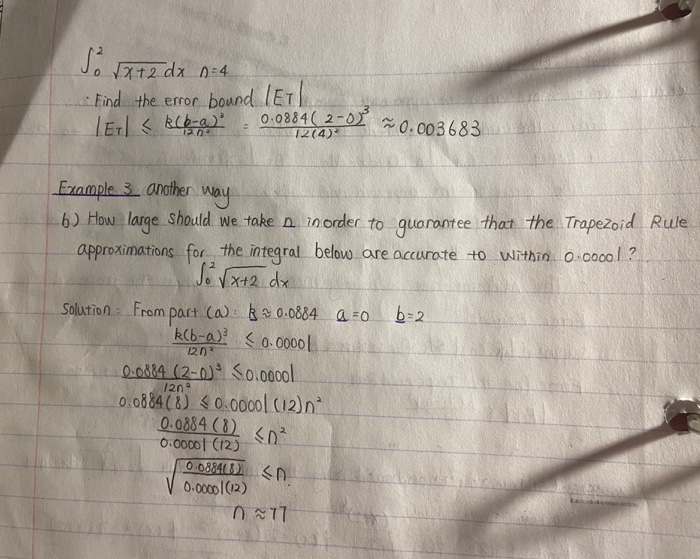 ∫₀² √x+2 dx n=4
· Find the error bound |ET|
|ET| ≤ k(b-a)³/12n² = 0.0884(2-0)³/12(4)² ≈ 0.003683
Example 3 another way
b) How large should we take n inorder to guarantee that the Trapezoid Rule
approximations for the integral below are accurate to within 0.0001?
∫₀² √x+2 dx
Solution: From part (a): k ≈ 0.0884 a=0 b=2
k(b-a)³/12n² ≤ 0.0001
0.0884 (2-0)³/12n² ≤ 0.0001
0.0884(8) ≤ 0.0001 (12)n²
0.0884 (8)/0.0001 (12) ≤ n²
√0.0884(8)/0.0001(12) ≤ n.
n ≈ 77